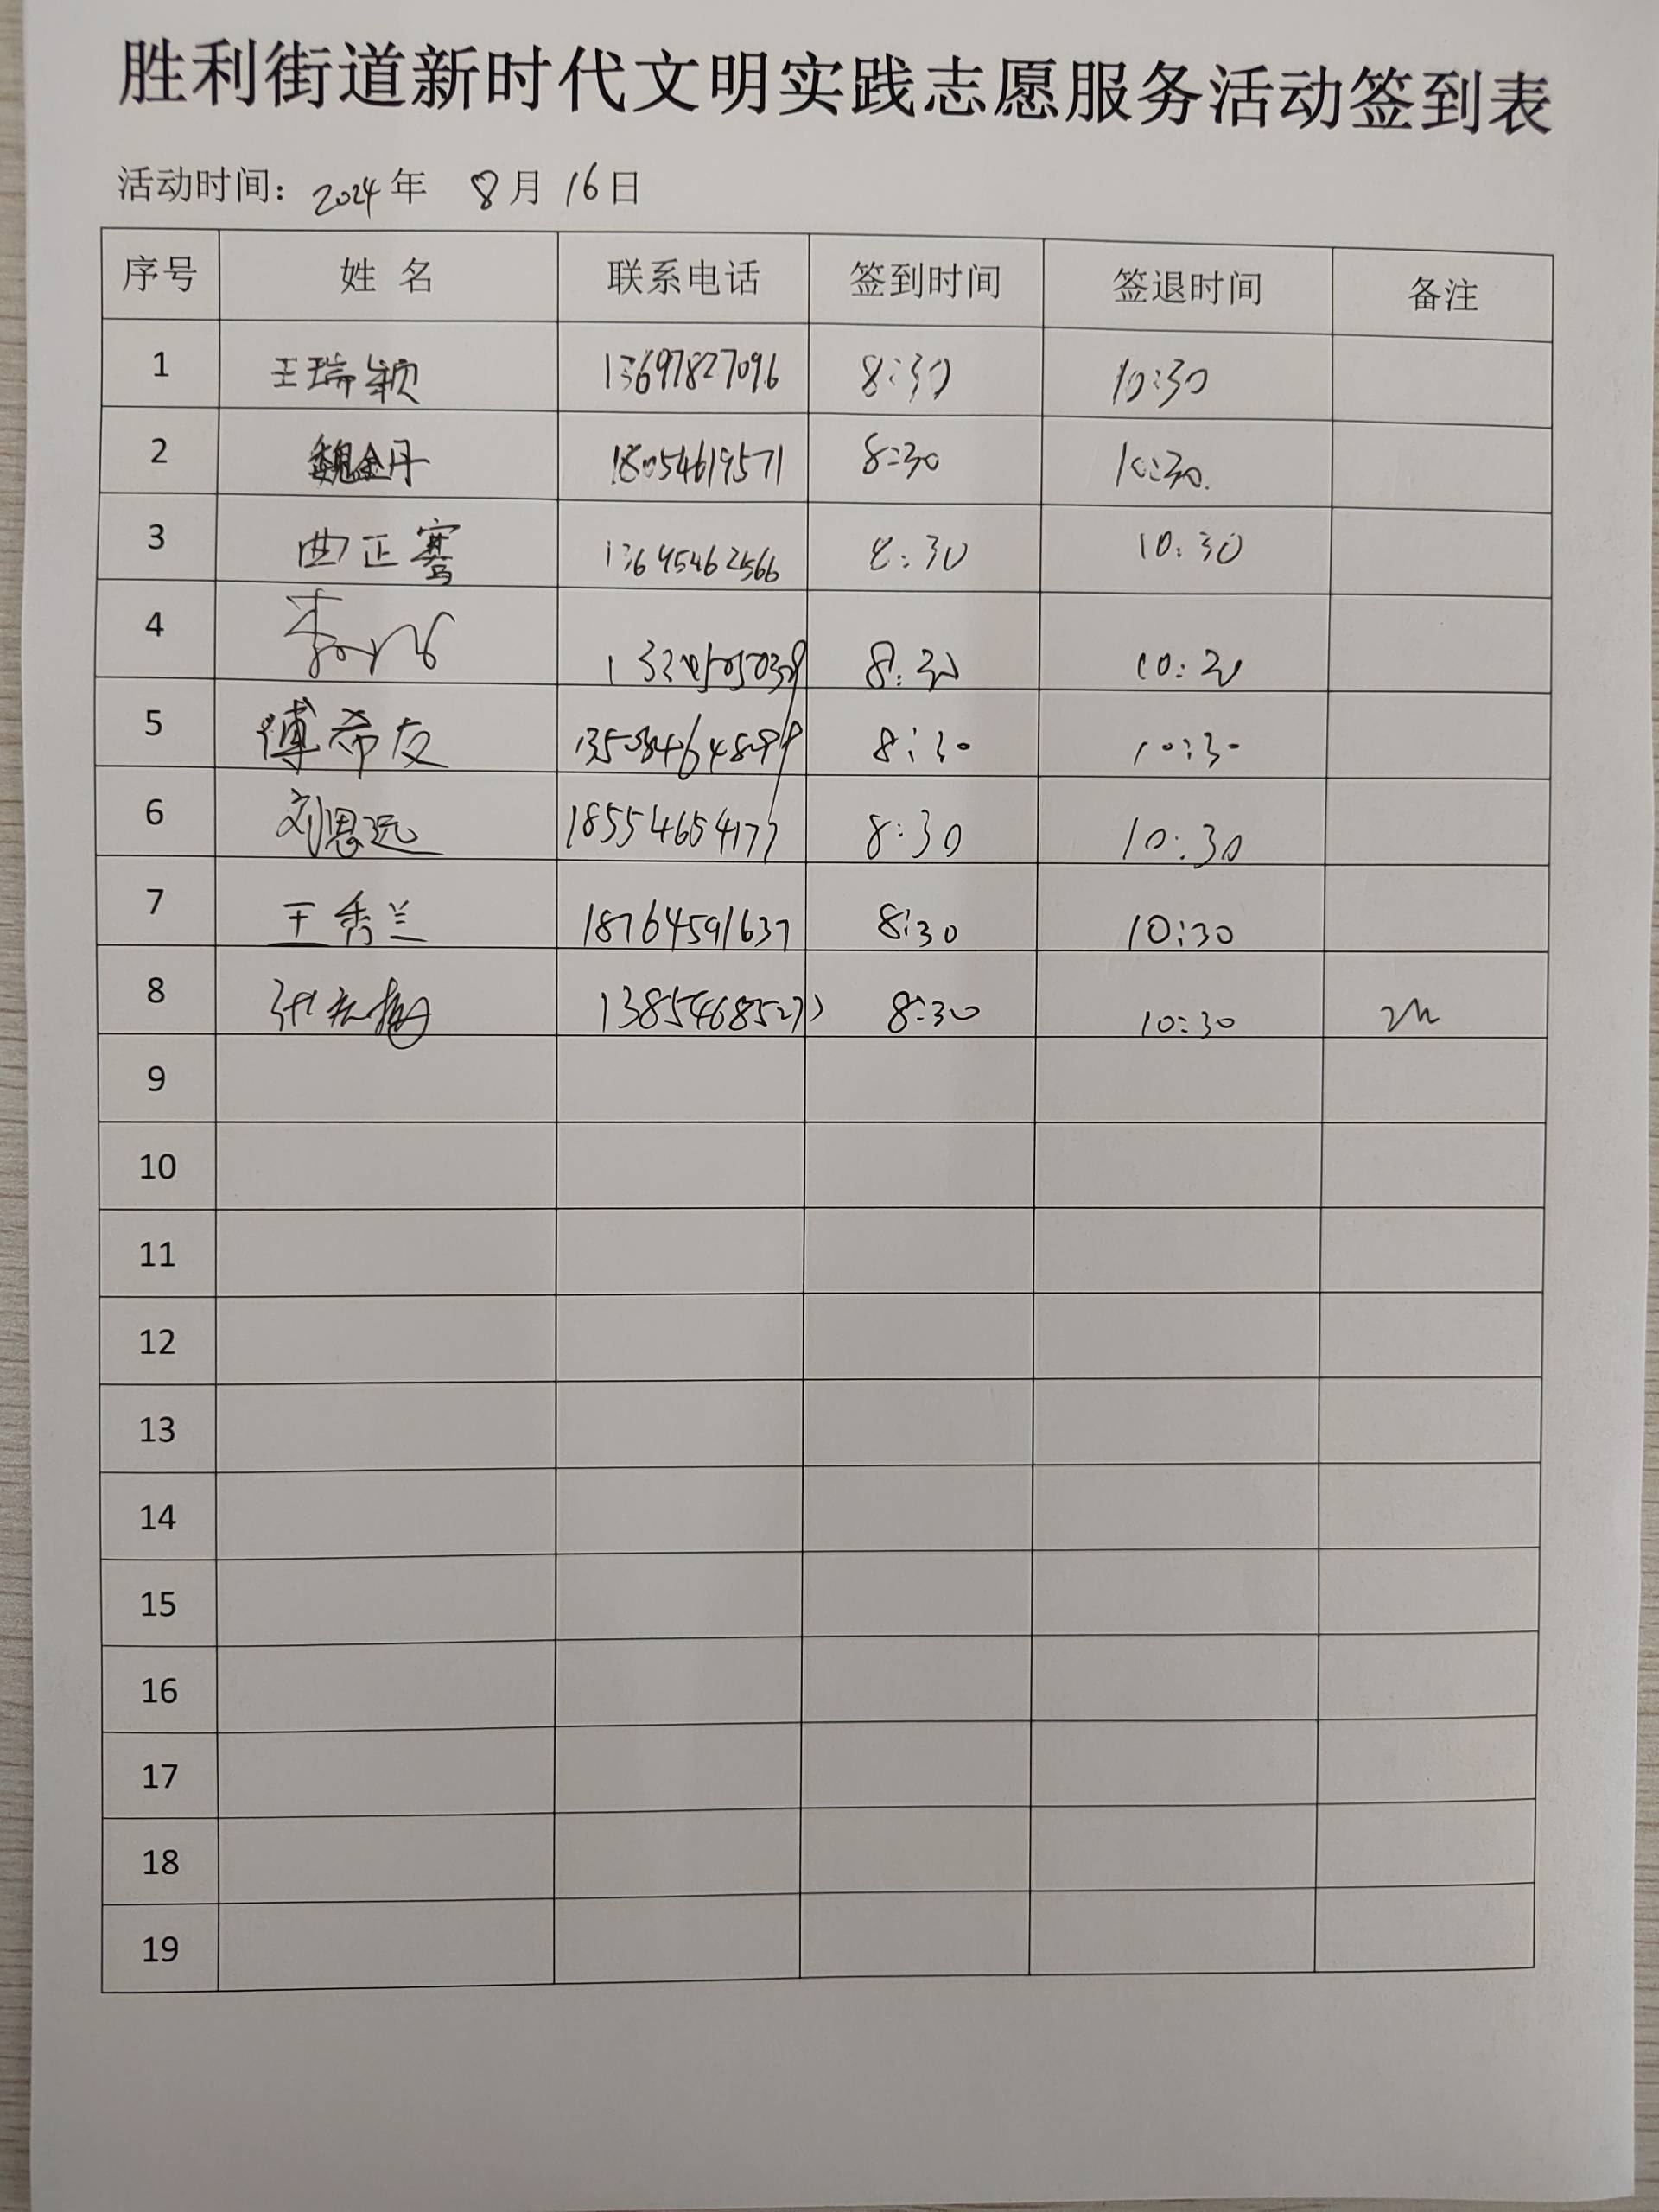 胜利街道新时代文明实践志愿服务活动签到表
活动时间：2024年 8月16日
序号 姓名 联系电话 签到时间 签退时间 备注
1 王瑞颖 13697827096 8:30 10:30
2 魏金丹 18054619571 8:30 10:30
3 曲正骞 13645462566 8:30 10:30
4 8:30 10:30
5 傅希友 8:30 10:30
6 刘恩远 18554654177 8:30 10:30
7 王秀兰 18764591637 8:30 10:30
8 13854685277 8:30 10:30 2h
9
10
11
12
13
14
15
16
17
18
19